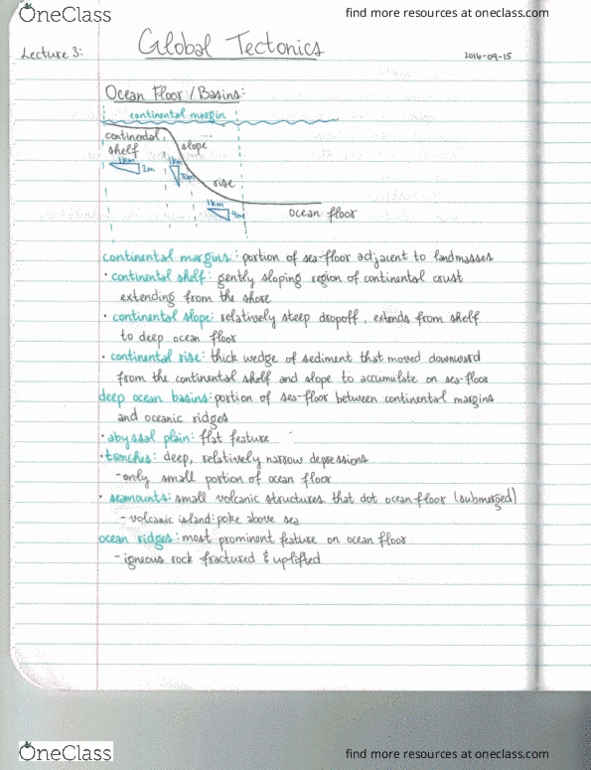 OneClass
find more resources at oneclass.com
Lecture 3:
Global Tectonics
2016-09-15
Ocean Floor/Basins:
continental margin
continental shelf
slope
1km
2m
1km
70m
rise
1km
9m
ocean floor
continental margins: portion of sea-floor adjacent to landmasses
• continental shelf: gently sloping region of continental crust
extending from the shore
• continental slope: relatively steep dropoff, extends from shelf
to deep ocean floor
• continental rise: thick wedge of sediment that moved downward
from the continental shelf and slope to accumulate on sea-floor
deep ocean basins: portion of sea-floor between continental margins
and oceanic ridges
• abyssal plain: flat feature
• trenches: deep, relatively narrow depressions
- only small portion of ocean floor
• seamounts: small volcanic structures that dot ocean floor (submerged)
- volcanic island: poke above sea
ocean ridges: most prominent feature on ocean floor
- igneous rock fractured & uplifted
OneClass
find more resources at oneclass.com